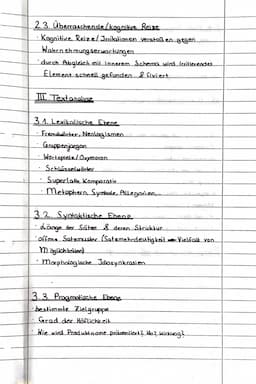 2.3. Überraschende/kognitive Reize
· Kognitive Reize/Irritationen verstoßen gegen
Wahrnehmungserwartungen
· durch Abgleich mit innerem Schema wird irritierendes
Element schnell gefunden & fixiert
III Textanalyse
3.1. Lexikalische Ebene
· Fremdwörter, Neologismen
· Gruppenjargon
· Wortspiele/Oxymoron
· Schlüsselwörter
· Superlativ, Komparativ
· Metaphern, Symbole, Allegorien...
3.2. Syntaktische Ebene
· Länge der Sätze & deren Struktur
· offene Satzmuster (Satzmehrdeutigkeit → Vielfalt von
Möglichkeiten)
· Morphologische Idiosynkrasien
3.3. Pragmatische Ebene
· bestimmte Zielgruppe
· Grad der Höflichkeit
· Wie wird Produktname präsentiert?